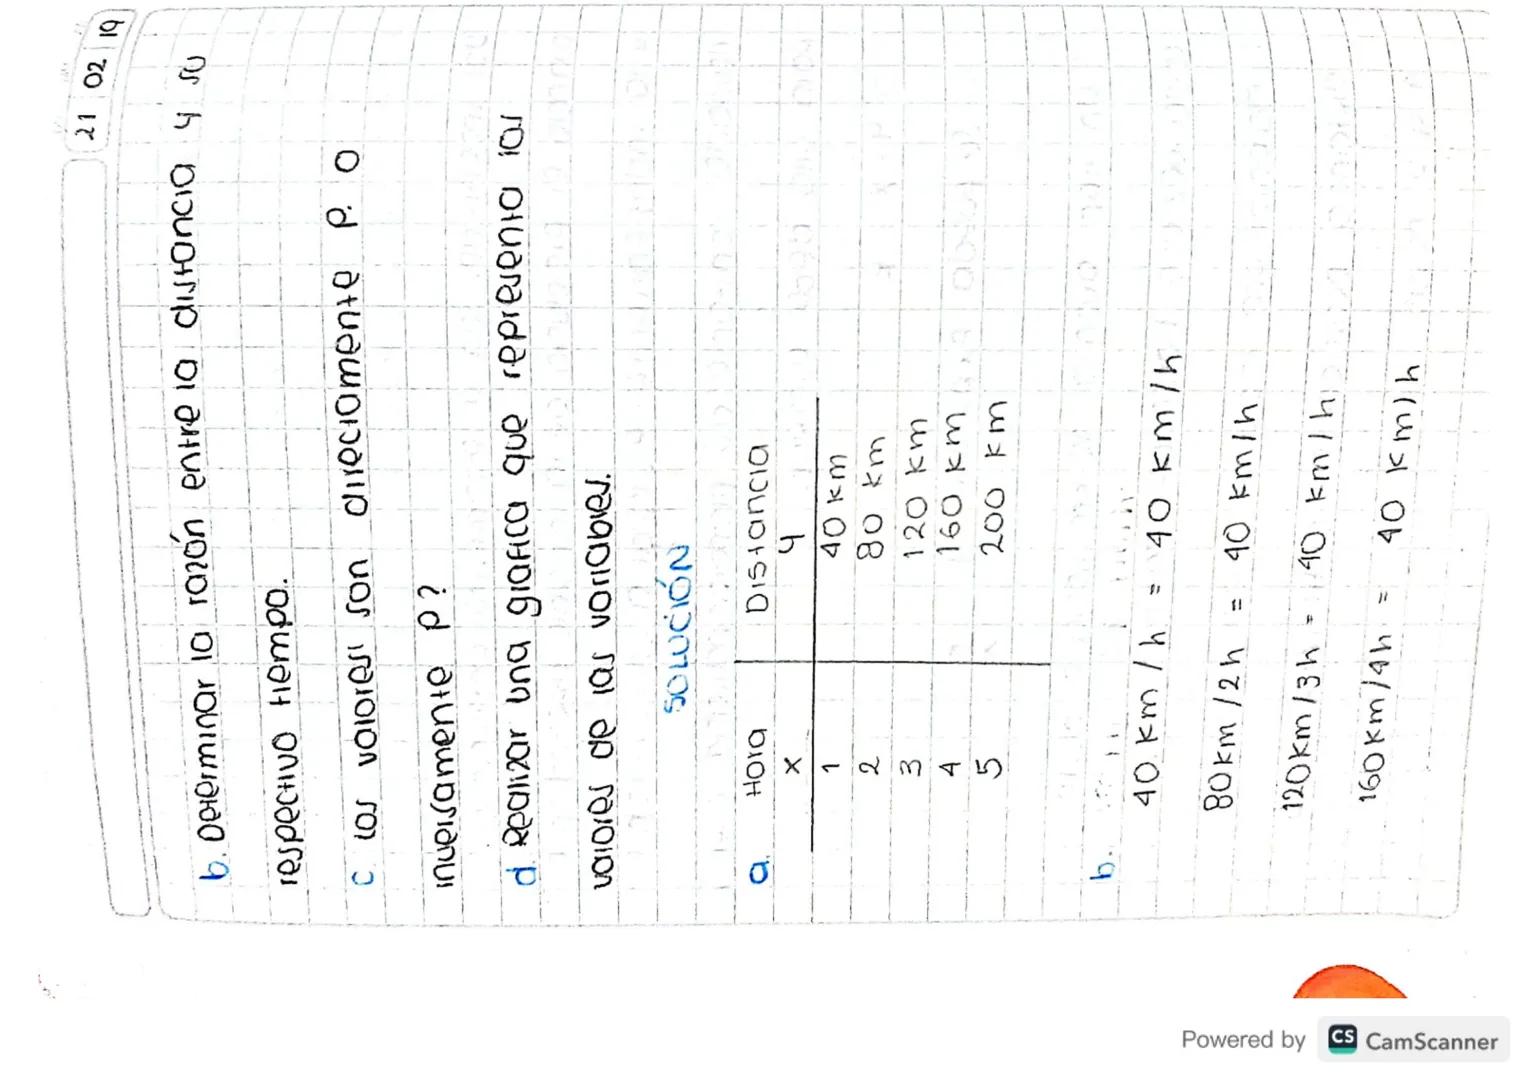 21 02 19
b. Determinar la razón entre la distancia y su
respectivo tiempo.
c Los valores son directamente p. o
inversamente p?
d. Realizar una grafica que representa los
valores de las variables.
SOLUCIÓN
a. Hora Distancia
x y
1 40 km
2 80 km
3 120 km
4 160 km
5 200 km
b.
40 km / h = 40 km / h
80 km / 2h = 40 km / h
120 km / 3h = 40 km / h
160 km / 4h = 40 km / h
Powered by CS CamScanner